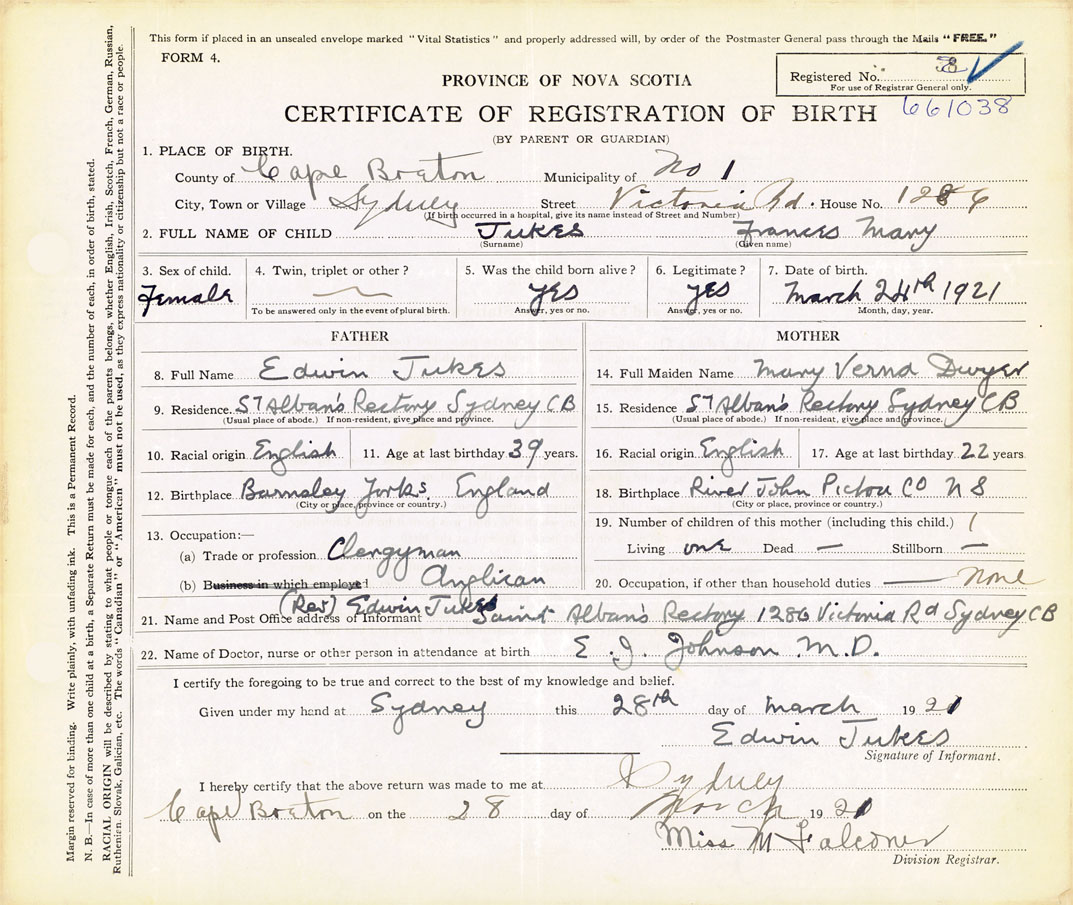 This form if placed in an unsealed envelope marked "Vital Statistics" and properly addressed will, by order of the Postmaster General pass through the Mails "FREE."
FORM 4.
Registered No.
For use of Registrar General only.
PROVINCE OF NOVA SCOTIA
CERTIFICATE OF REGISTRATION OF BIRTH 661038
(BY PARENT OR GUARDIAN)
1. PLACE OF BIRTH.
County of Cape Breton Municipality of No 1
City, Town or Village Sydney Street Victoria Rd. House No. 1286
(If birth occurred in a hospital, give its name instead of Street and Number)
2. FULL NAME OF CHILD Jukes Frances Mary
(Surname) (Given name)
3. Sex of child. 4. Twin, triplet or other? 5. Was the child born alive? 6. Legitimate? 7. Date of birth.
Female — yes yes March 24th 1921
To be answered only in the event of plural birth. Answer, yes or no. Answer, yes or no. Month, day, year.
FATHER MOTHER
8. Full Name Edwin Jukes 14. Full Maiden Name Mary Verna Dwyer
9. Residence St Alban's Rectory Sydney CB 15. Residence St Alban's Rectory Sydney CB
(Usual place of abode.) If non-resident, give place and province. (Usual place of abode.) If non-resident, give place and province.
10. Racial origin English 11. Age at last birthday 39 years. 16. Racial origin English 17. Age at last birthday 22 years
12. Birthplace Barnsley Yorks. England 18. Birthplace River John Pictou Co N S
(City or place, province or country.) (City or place, province or country.)
13. Occupation:— 19. Number of children of this mother (including this child.) 1
(a) Trade or profession Clergyman Living one Dead — Stillborn —
(b) Business in which employed Anglican 20. Occupation, if other than household duties — none
(Rev) Edwin Jukes
21. Name and Post Office address of Informant Saint Alban's Rectory 1286 Victoria Rd Sydney CB
22. Name of Doctor, nurse or other person in attendance at birth E. J. Johnson M.D.
I certify the foregoing to be true and correct to the best of my knowledge and belief.
Given under my hand at Sydney this 28th day of March 1921
Edwin Jukes
Signature of Informant.
I hereby certify that the above return was made to me at Sydney
Cape Breton on the 28 day of March 1921
Miss M Falconer
Division Registrar.
Margin reserved for binding. Write plainly, with unfading ink. This is a Permanent Record.
N. B.—In case of more than one child at a birth, a Separate Return must be made for each, and the number of each, in order of birth, stated.
RACIAL ORIGIN will be described by stating to what people or tongue each of the parents belongs, whether English, Irish, Scotch, French, German, Russian,
Ruthenian, Slovak, Galician, etc. The words "Canadian" or "American" must not be used, as they express nationality or citizenship but not a race or people.